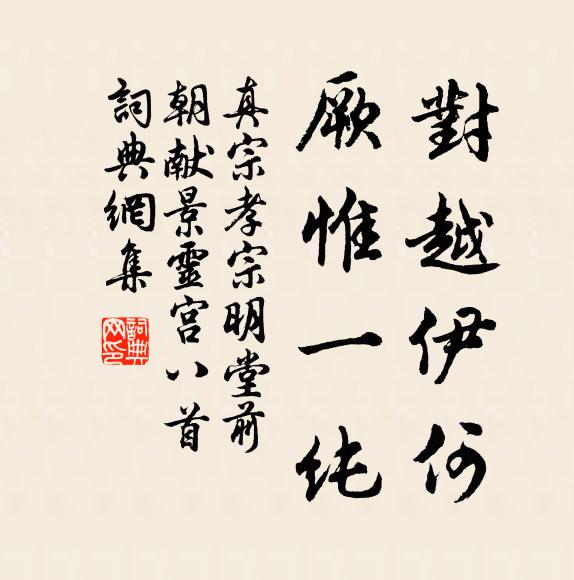 對越伊何
厥惟一純
真宗孝宗明堂前
朝献景靈宮八首
詞典網集
詞典
网印